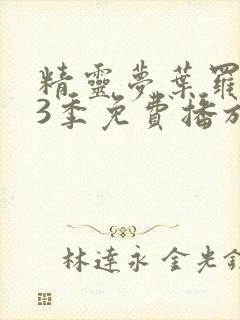 精靈夢葉羅
3季免費播放
林達永金光鋒